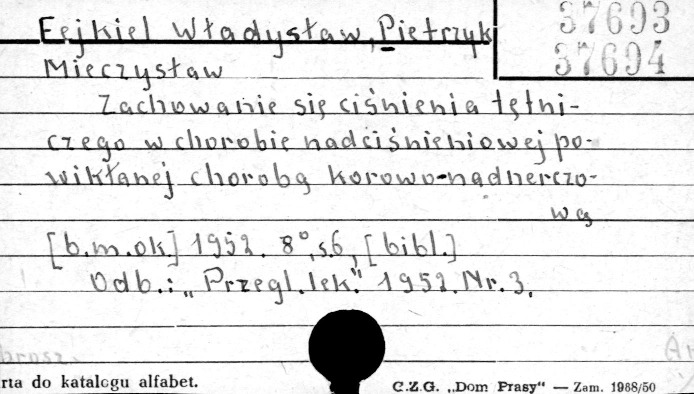 Fejkiel Władysław, Pietrzyk
37693
37694
Mieczysław
Zachowanie się ciśnienia tętni-
czego w chorobie nadciśnieniowej po-
wikłanej chorobą korowo-nadnerczo-
wą
[b.m.ok] 1952. 8°, s.6, [bibl.]
Odb.: „Przegl.lek." 1952. Nr. 3.
brosz.
rta do katalogu alfabet.
C.Z.G. „Dom Prasy" — Zam. 1988/50